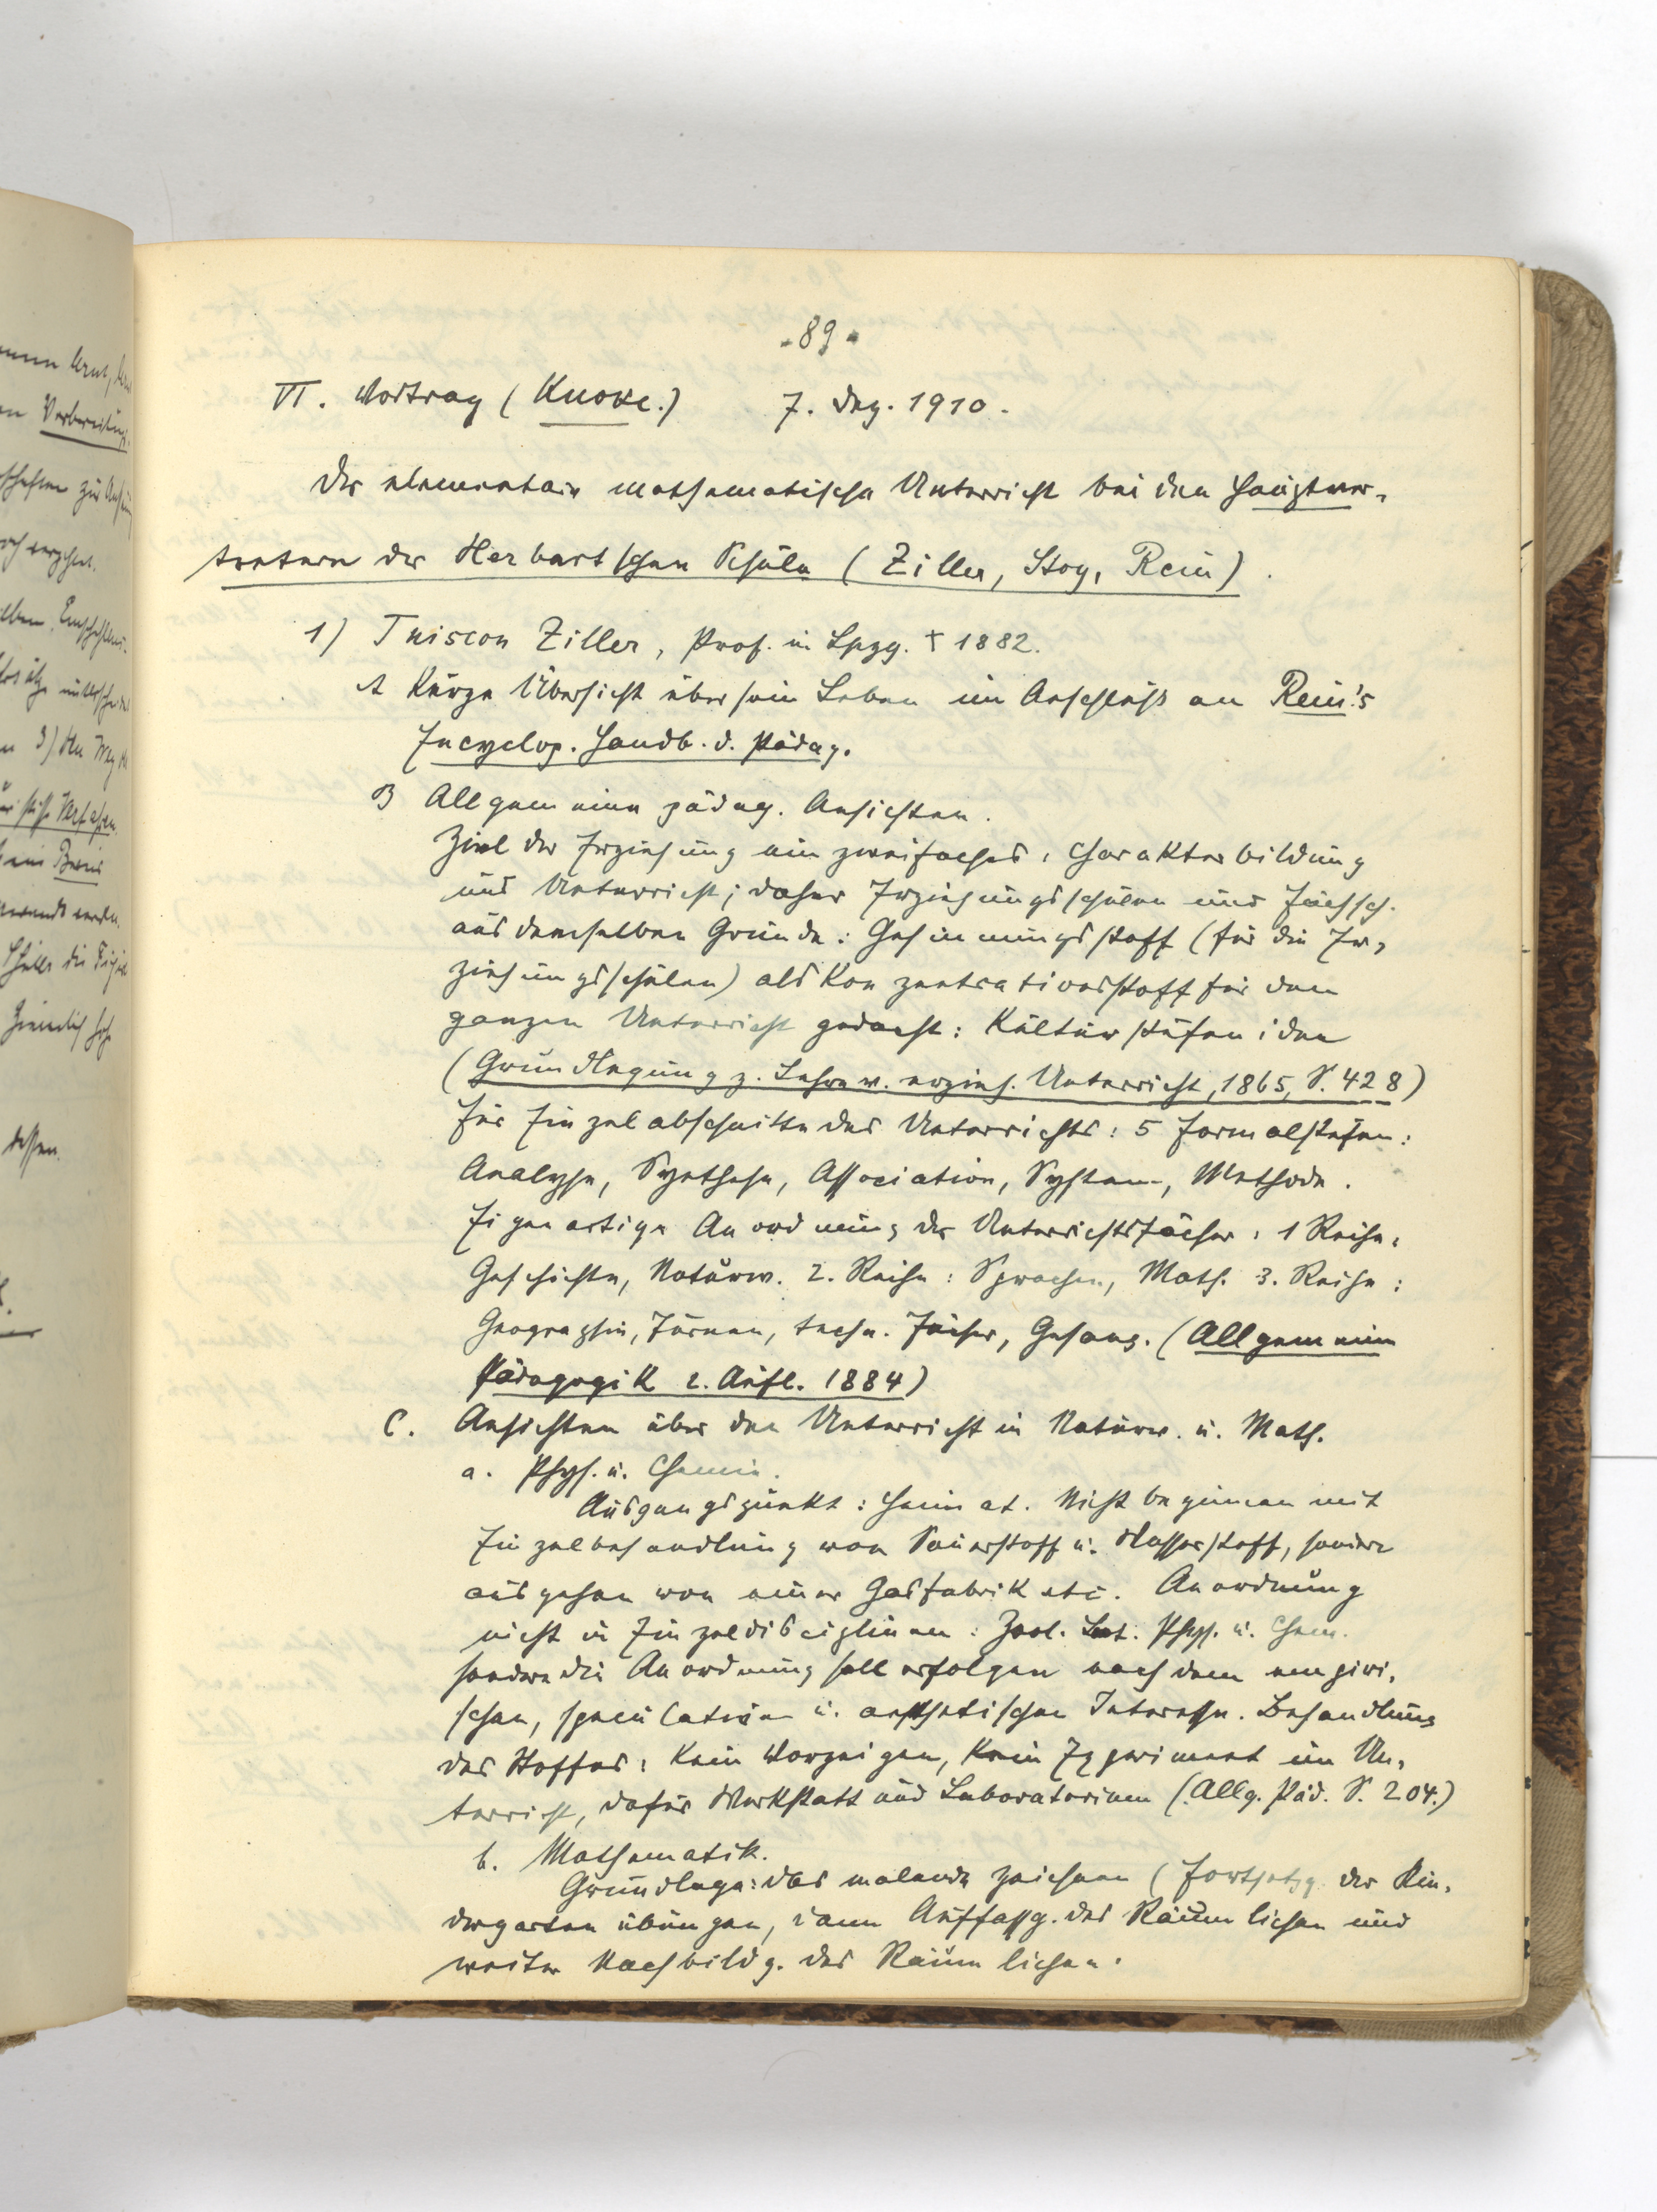 - 89 -
VI. Vortrag (Knoke.) 7. Dez. 1910.
Der elementare mathematische Unterricht bei den Hauptver-
tretern der Herbartschen Schule (Ziller, Stoy, Rein).
1) Tuiscon Ziller, Prof. in Lpzg. † 1882.
A Kurze Übersicht über sein Leben im Anschluß an Rein's
Encyclop. Handb. d. Pädag.
B Allgemeine pädag. Ansichten.
Ziel der Erziehung ein zweifaches: Charakterbildung
und Unterricht; daher Erziehungsschulen und Fachsch.
aus demselben Grunde: Gesinnungsstoff (für die Er-
ziehungsschulen) als Konzentrationsstoff für den
ganzen Unterricht gedacht: Kulturstufen; den
(Grundlegung z. Lehre v. erzieh. Unterricht, 1865, S. 428)
für Einzelabschnitte des Unterrichts: 5 Formalstufen:
Analyse, Synthese, Association, System, Methode.
Eigenartige Anordnung der Unterrichtsfächer: 1 Reihe:
Geschichte, Naturw. 2. Reihe: Sprachen, Math. 3. Reihe:
Geographie, Turnen, techn. Fächer, Gesang. (Allgemeine
Pädagogik 2. Aufl. 1884)
C. Ansichten über den Unterricht in Naturw. u. Math.
a. Phys. u. Chemie.
Ausgangspunkt: Heimat. Nicht beginnen mit
Einzelbehandlung von Sauerstoff u. Wasserstoff, sondern
ausgehen von einer Gasfabrik etc. Anordnung
nicht in Einzeldisciplinen: Zool. Bot. Phys. u. Chem.
sondern die Anordnung soll erfolgen nach dem empiri-
schen, speculativen u. ästhetischen Interesse. Behandlung
des Stoffes: Kein Vorzeigen, kein Experiment im Un-
terricht, dafür Werkstatt und Laboratorium (Allg. Päd. S. 204.)
b. Mathematik.
Grundlage: das malende Zeichnen (Fortsetzg. der Kin-
dergartenübungen, dann Auffassg. des Räumlichen und
weiter Nachbildg. des Räumlichen.